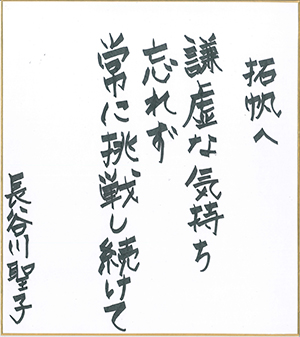 拓帆へ
謙虚な気持ち
忘れず
常に挑戦し続けて
長谷川聖子